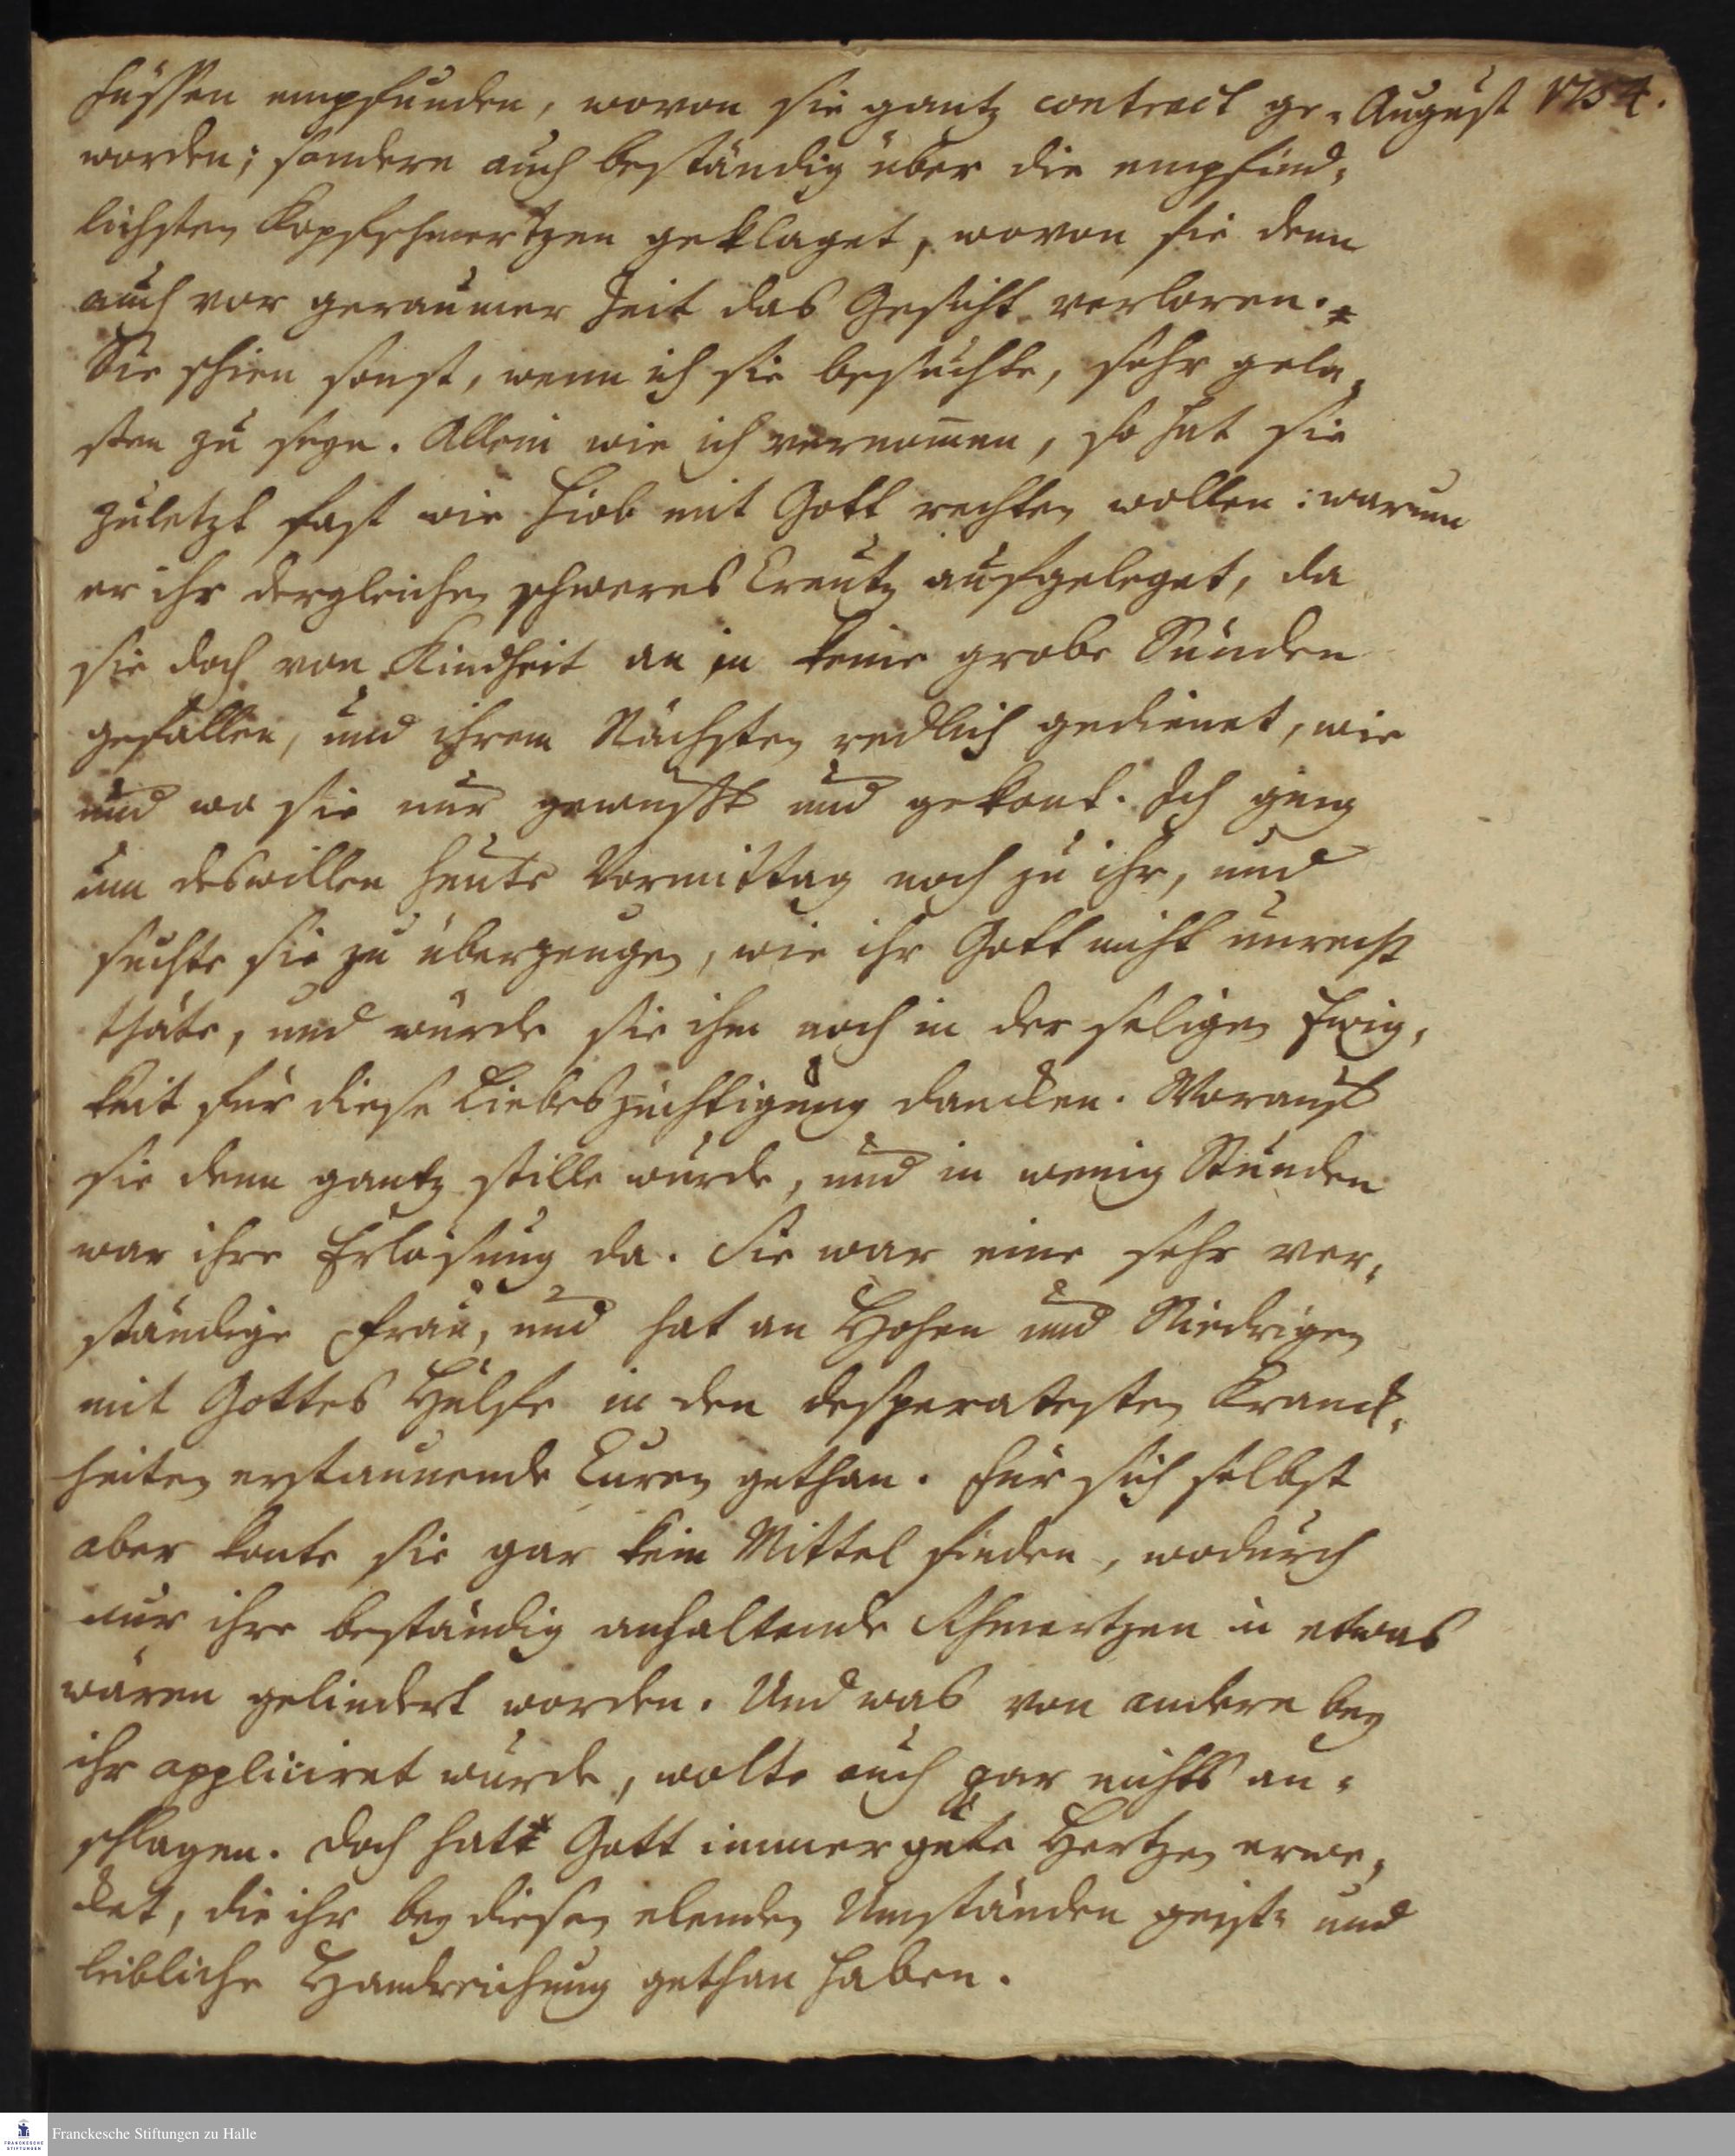 Füssen empfunden, wovon sie gantz contract ge- August 1754.
worden; sondern auch beständig über die empfind-
lichsten Kopfschmertzen geklaget, wovon sie denn
auch vor geraumer Zeit das Gesicht verloren.
Sie schien sonst, wenn ich sie besuchte, sehr gela-
ssen zu seyn. Allein wie ich vernom̄en, so hat sie
zuletzt fast wie Hiob mit Gott rechten wollen: warum
er ihr dergleichen schweres Creutz aufgeleget, da
sie doch von Kindheit an in keine grobe Sünden
gefallen, und ihrem Nächsten redlich gedienet, wie
und wo sie nur gewusst und gekont. Ich ging
um deswillen heute Vormittag noch zu ihr, und
suchte sie zu überzeugen, wie ihr Gott nicht unrecht
thäte, und würde sie ihm noch in der seligen Ewig-
keit für diese Liebeszüchtigung dancken. Worauf
sie denn gantz stille wurde, und in wenig Stunden
war ihre Erlösung da. Sie war eine sehr ver-
ständige Frau, und hat an Hohen und Niedrigen
mit Gottes Hülfe in den desperatesten Kranck-
heiten erstaunende Curen gethan. Für sich selbst
aber konte sie gar kein Mittel finden, wodurch
nur ihre beständig anhaltende Schmertzen in etwas
wären gelindert worden. Und was von andern bey
ihr appliciret wurde, wolte auch gar nichts an-
schlagen. Doch hat Gott immer gute Hertzen erwe-
cket, die ihr bey diesen elenden Umständen geist- und
leibliche Handreichung gethan haben.
Franckesche Stiftungen zu Halle
FRANCKESCHE
STIFTUNGEN